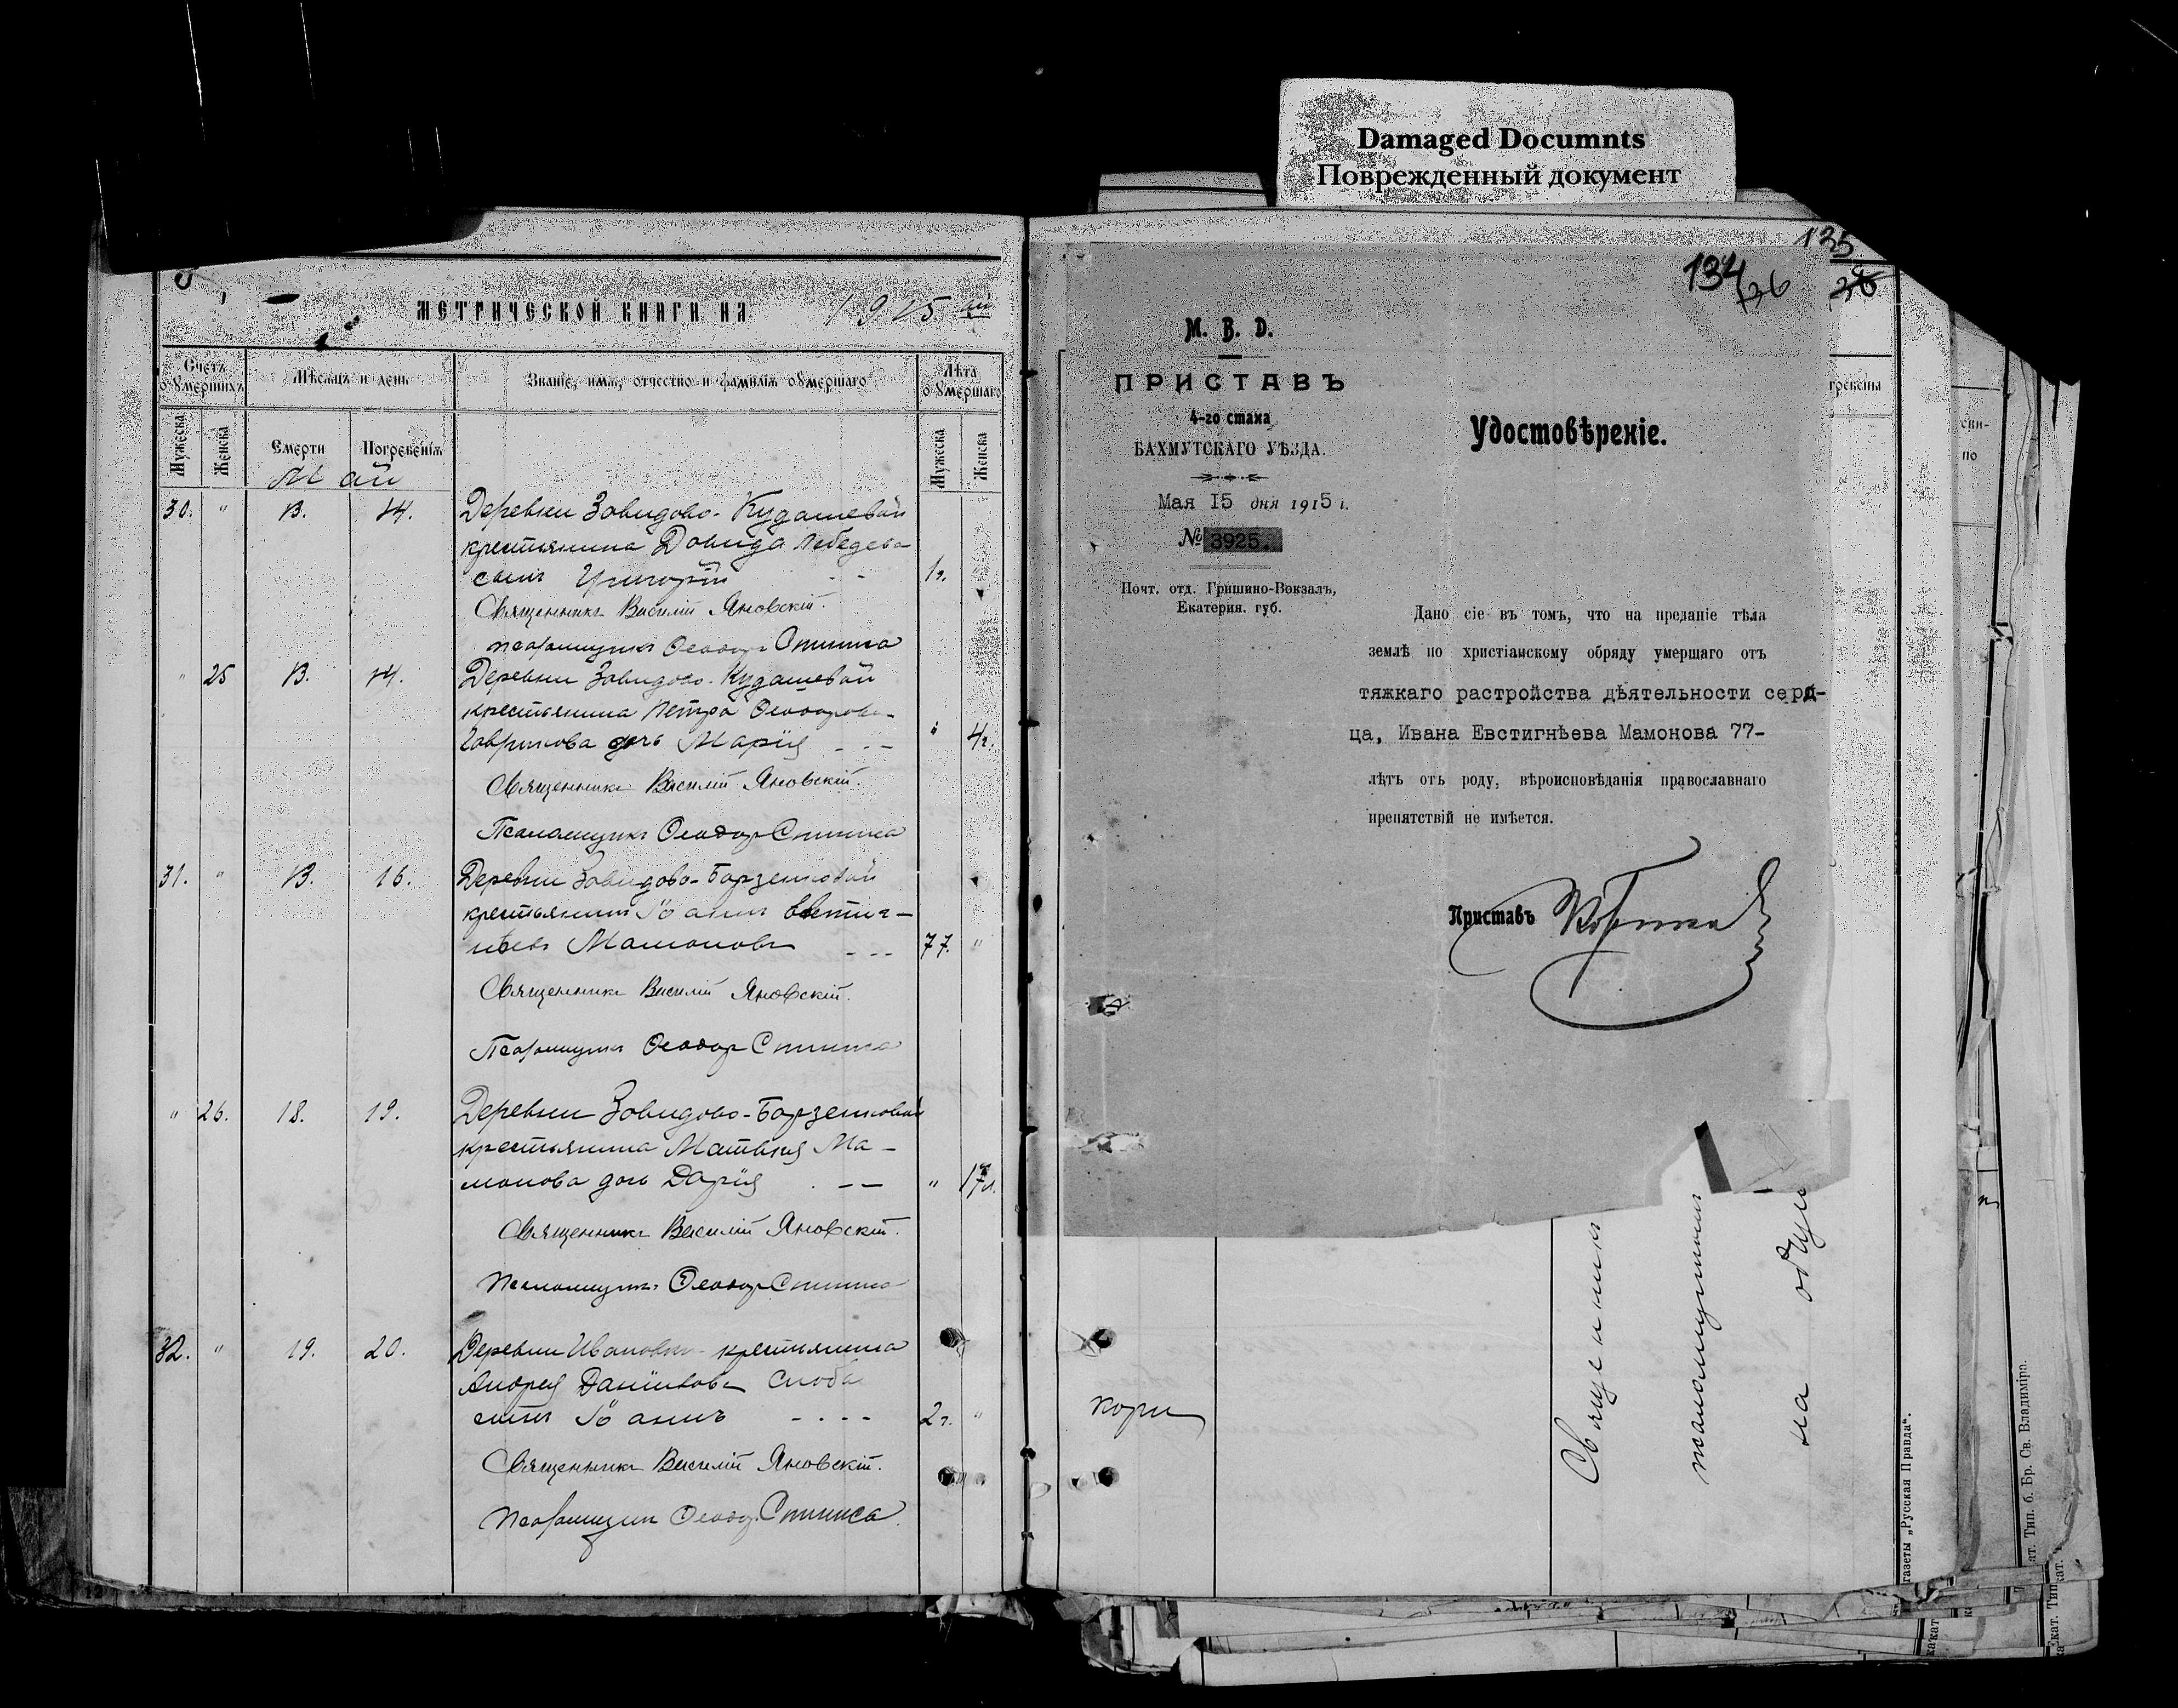 Damaged Documnts
Поврежденный документ
МЕТРИЧЕСКОЙ КНИГИ НА 1915 ый
Счетъ оумершихъ
Мѣсяцъ и день
Званіе, имя, отчество и фамилія оумершаго
Лѣта оумершаго
Мужеска
Женска
Смерти
Погребенія
Мужеска
Женска
Май
30. " 13. 14. Деревни Завидово-Кудашевой
крестьянина Давида Лебедева
сынъ Григорій - - 1 г.
Священникъ Василій Яновскій.
псаломщикъ Ѳеодоръ
" 25 13. 14. Деревни Завидово-Кудашевой
крестьянина Петра Ѳеодорова
Гаврикова дочь Марія - - - " 4 г.
Священникъ Василій Яновскій.
Псаломщикъ Ѳеодоръ
31. " 13. 16. Деревни Завидово-Борзенковой
крестьянинъ Іоаннъ Евстиг-
нѣевъ Мамоновъ - - - 77. "
Священникъ Василій Яновскій.
Псаломщикъ Ѳеодоръ
" 26. 18. 19. Деревни Завидово-Борзенковой
крестьянина Матвѣя Ма-
монова дочь Дарія - - "
Священникъ Василій Яновскій.
Псаломщикъ Ѳеодоръ
32. " 19. 20. Деревни Ивановки крестьянина
Андрея
сынъ Іоаннъ - - - - 2 г. "
Священникъ Василій Яновскій.
Псаломщикъ Ѳеодоръ
135
134
136
М. В. Д.
ПРИСТАВЪ
4-го стана
БАХМУТСКАГО УѢЗДА.
Мая 15 дня 1915 г.
№ 3925.
Почт. отд. Гришино-Вокзалъ,
Екатерин. губ.
Удостовѣреніе.
Дано сіе въ томъ, что на преданіе тѣла
землѣ по христіанскому обряду умершаго отъ
тяжкаго растройства дѣятельности серд-
ца, Ивана Евстигнѣева Мамонова 77-
лѣтъ отъ роду, вѣроисповѣданія православнаго
препятствій не имѣется.
Приставъ
гребены
сви-
по
кори
Священник
псаломщиком
на
газеты „Русская Правда".
ат. Тип. б. Бр. Св. Владиміра.